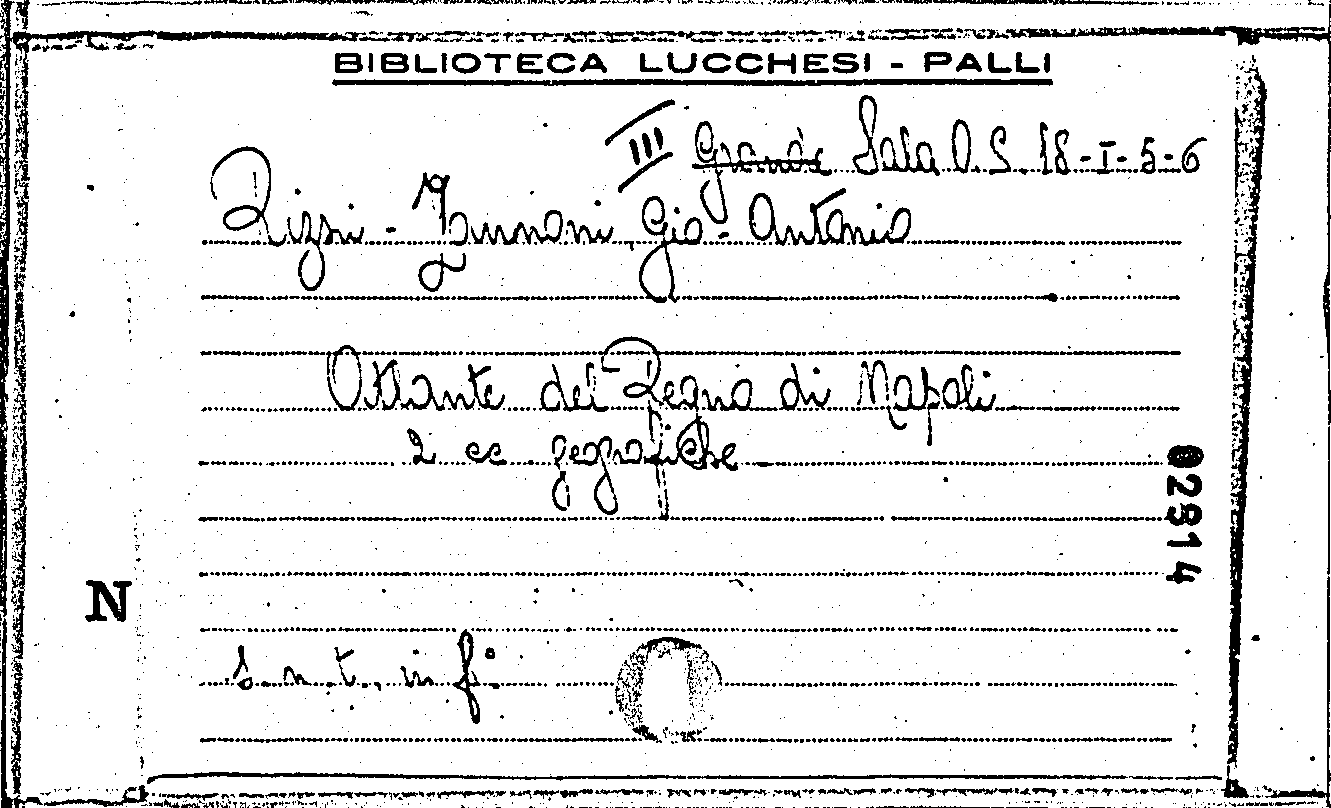 BIBLIOTECA LUCCHESI - PALLI
III Grande Sala O.S. 18-I-5-6
Rizzi - Zannoni Gio- Antonio
Atlante del Regno di Napoli
2 cc geografiche
02914
N
s.n.t., in f.º